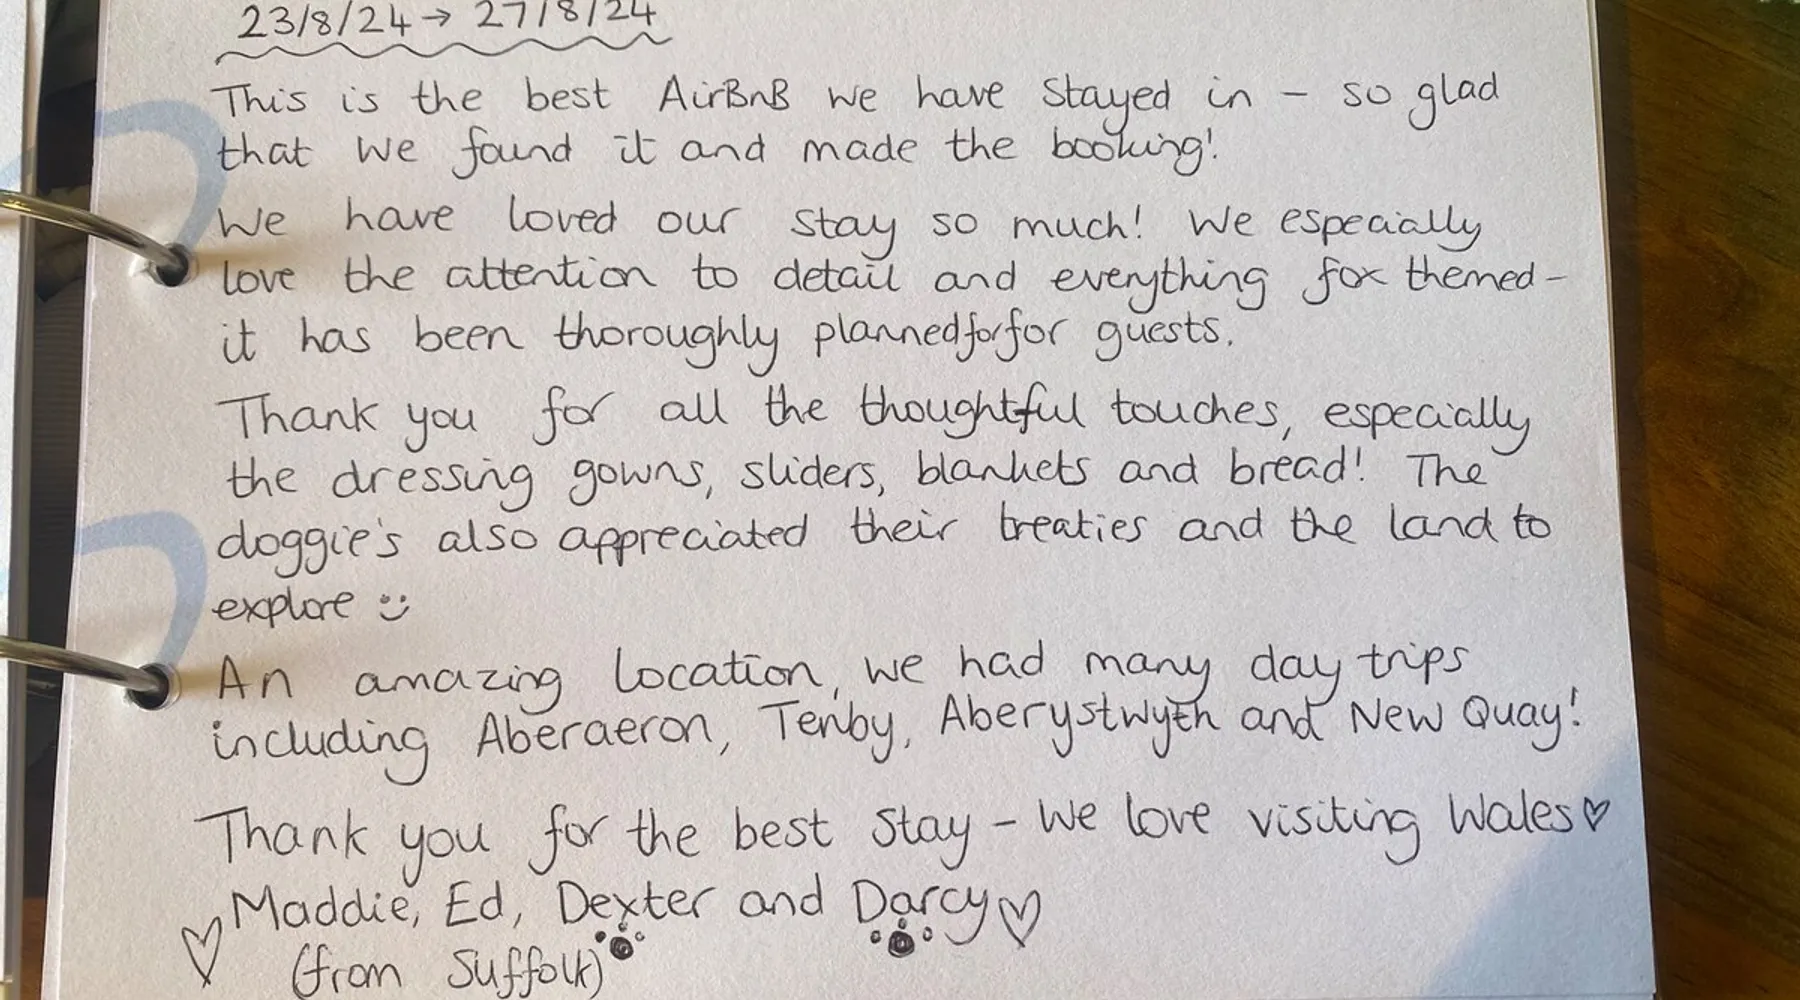 23/8/24 → 27/8/24
This is the best AirBnB we have stayed in - so glad
that we found it and made the booking!
We have loved our stay so much! We especially
love the attention to detail and everything fox themed -
it has been thoroughly planned for for guests.
Thank you for all the thoughtful touches, especially
the dressing gowns, sliders, blankets and bread! The
doggie's also appreciated their treaties and the land to
explore :)
An amazing location, we had many day trips
including Aberaeron, Tenby, Aberystwyth and New Quay!
Thank you for the best stay - we love visiting Wales ♡
Maddie, Ed, Dexter and Darcy ♡
♡ (from Suffolk)